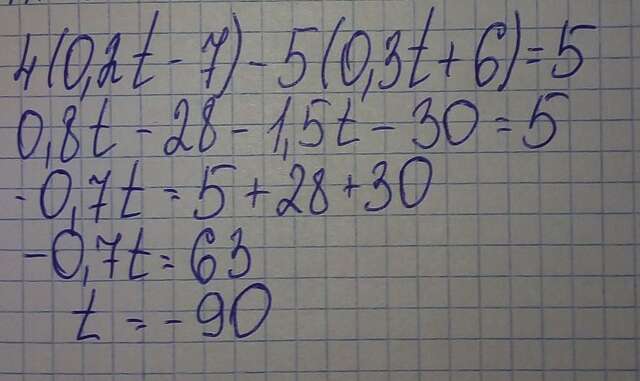 4(0,2t - 7) - 5(0,3t + 6) = 5
0,8t - 28 - 1,5t - 30 = 5
- 0,7t = 5 + 28 + 30
- 0,7t = 63
t = - 90